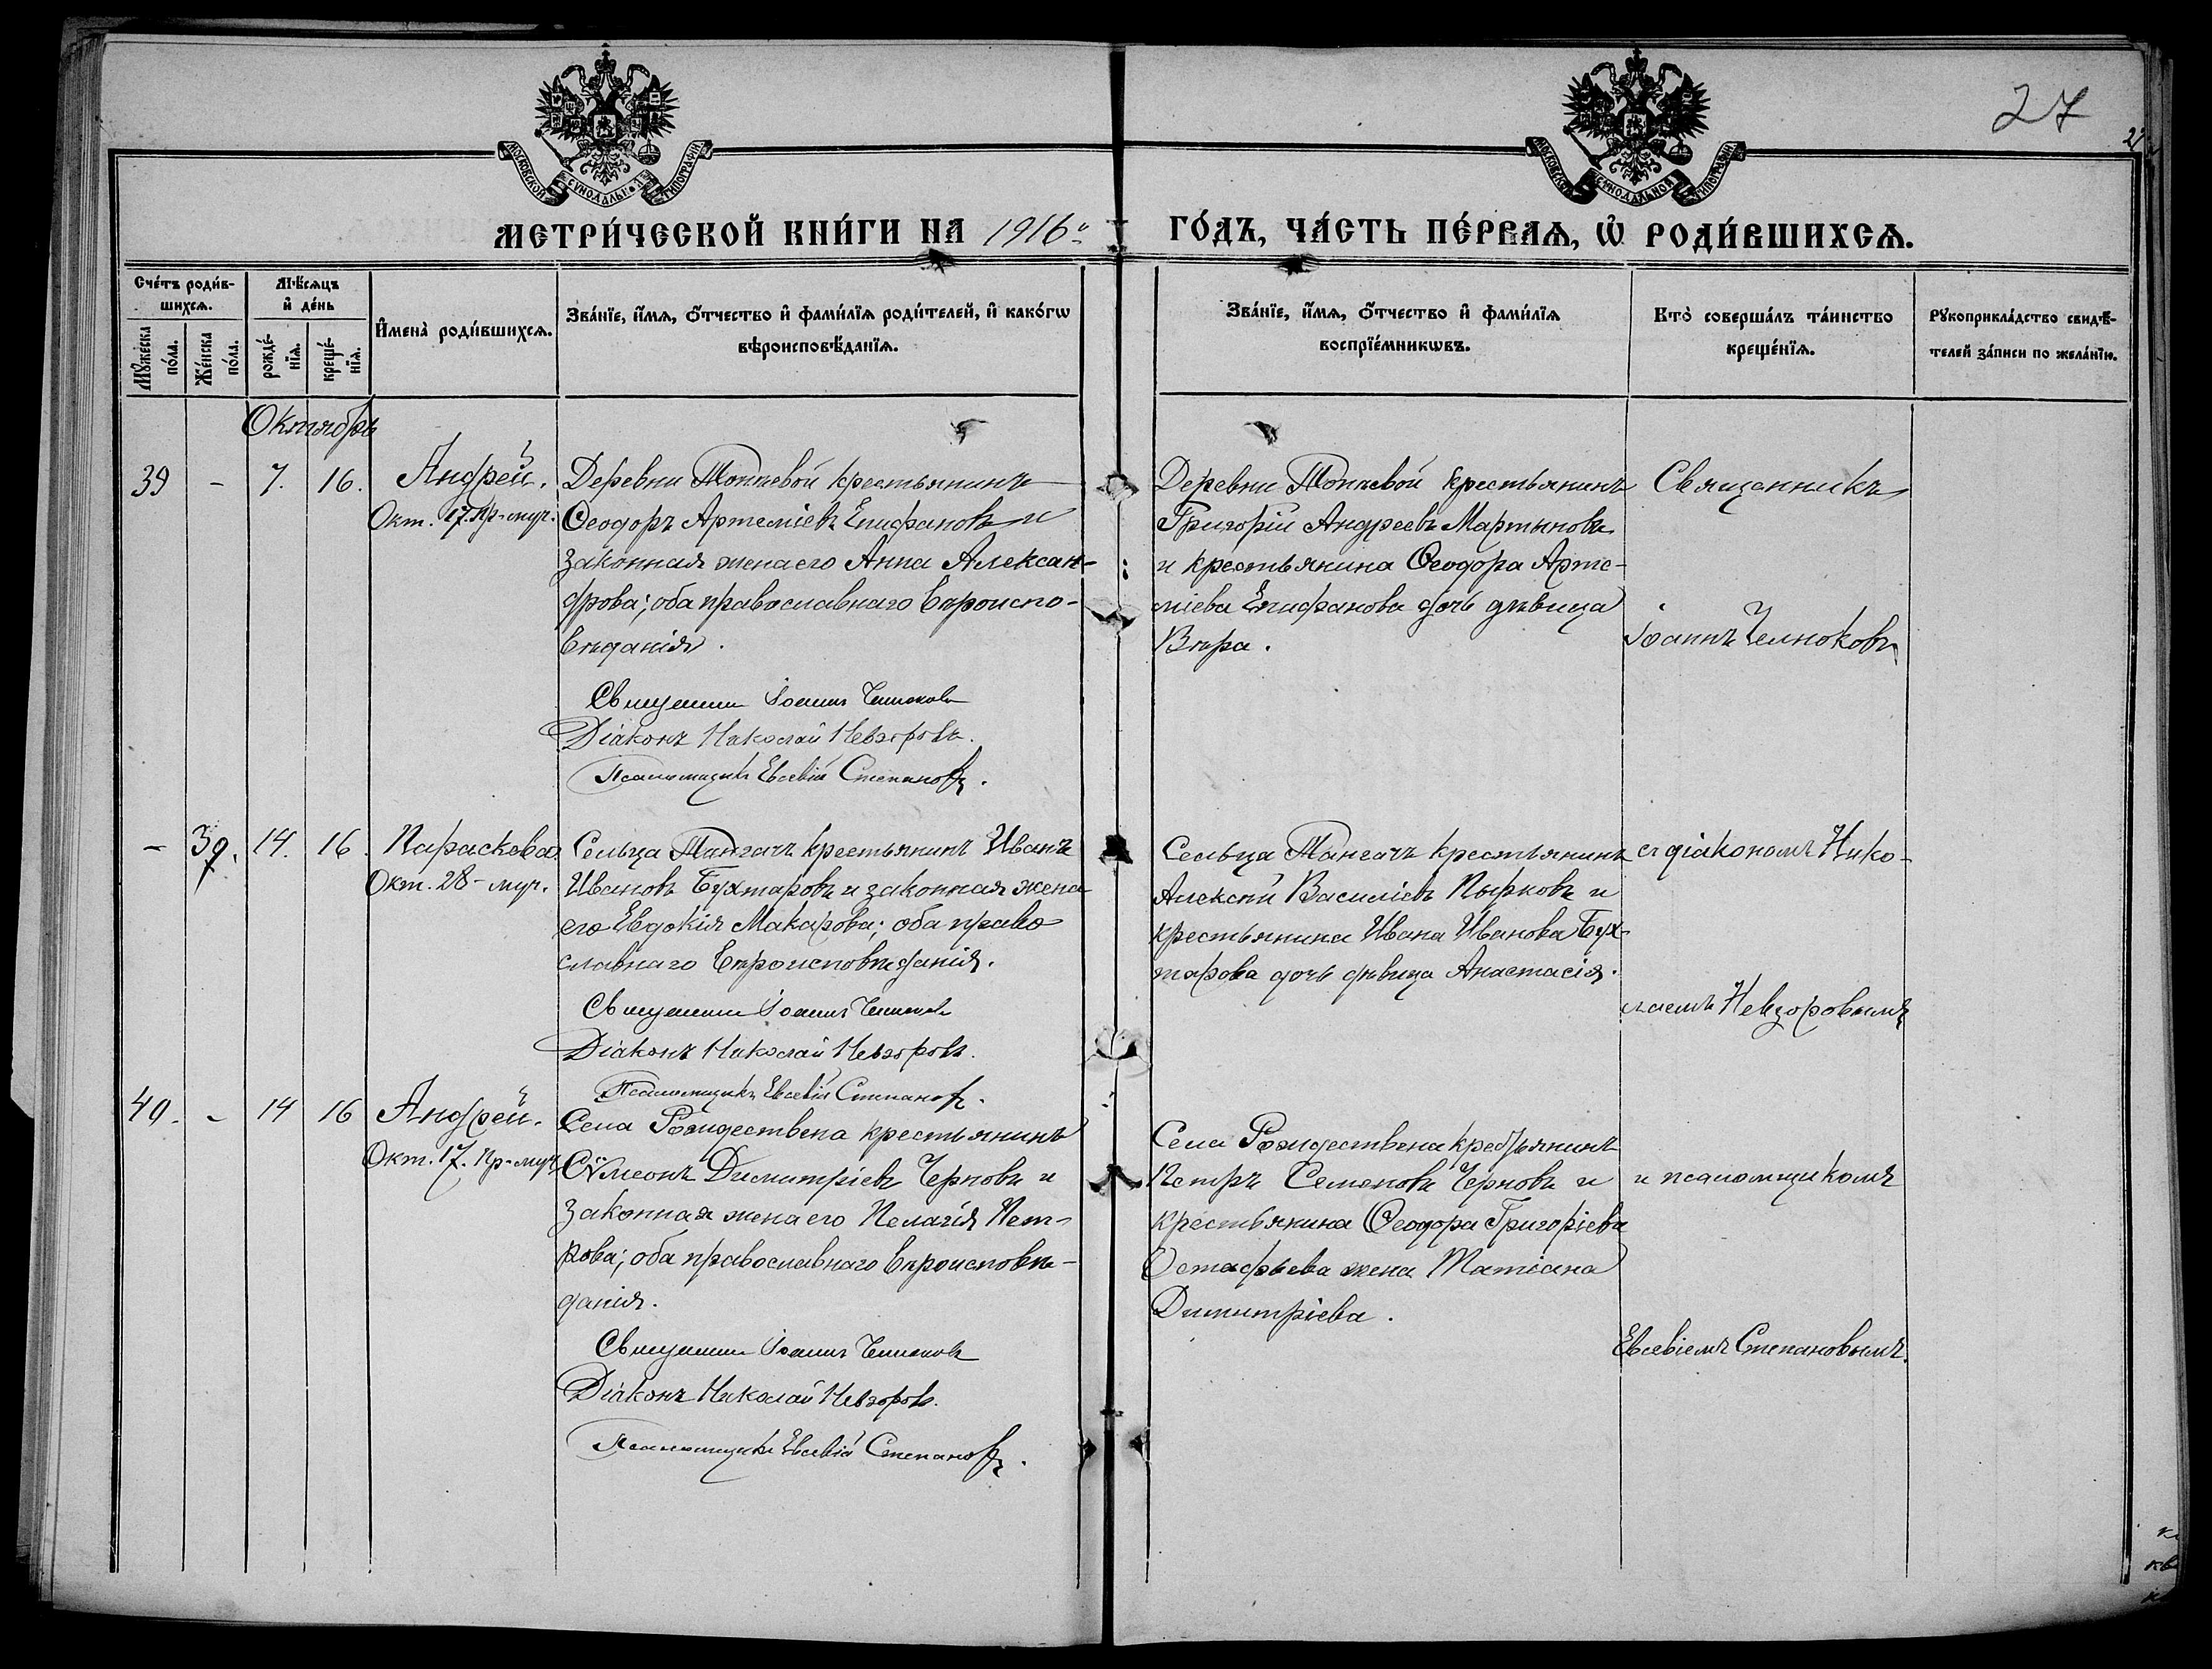 МОСКОВСКОЙ СѴНОДАЛЬНОЙ ТИПОГРАФІИ
МОСКОВСКОЙ СѴНОДАЛЬНОЙ ТИПОГРАФІИ
27
МЕТРИ́ЧЕСКОЙ КНИ́ГИ НА 1916й ГО́ДЪ, ЧА́СТЬ ПЕ́РВАѦ, Ѽ РОДИ́ВШИХСѦ.
Сче́тъ роди́в-
шихсѧ.
Мꙋ́жеска по́ла.
Же́нска по́ла.
Мѣ́сѧцъ
и҆ де́нь
рожде́-
нїѧ.
креще́-
нїѧ.
И҆мена̀ роди́вшихсѧ.
Зва́нїе, и҆́мѧ, ѻ҆́тчество и҆ фами́лїѧ роди́телей, и҆ како́гѡ
вѣроисповѣ́данїѧ.
Зва́нїе, и҆́мѧ, ѻ҆́тчество и҆ фами́лїѧ
воспрїе́мникѡвъ.
Кто̀ соверша́лъ та́инство
креще́нїѧ.
Рꙋкоприкла́дство свидѣ́-
телей за́писи по жела́нїю.
Октябрь
39 - 7. 16. Андрей.
Окт. 17. Пр-муч.
Деревни Топкевой крестьянинъ
Ѳеодоръ Артеміевъ Епифановъ и
законная жена его Анна Алексан-
дрова; оба православнаго вѣроиспо-
вѣданія.
Священникъ Іоаннъ Челноковъ
Діаконъ Николай Невзоровъ.
Псаломщикъ Евсевій Степановъ.
Деревни Топкевой крестьянинъ
Григорій Андреевъ Мартыновъ
и крестьянина Ѳеодора Арте-
міева Епифанова дочь дѣвица
Вѣра.
Священникъ
Іоаннъ Челноковъ
- 39. 14. 16. Параскева
Окт. 28-муч.
Сельца Тангачъ крестьянинъ Иванъ
Ивановъ Бухтаровъ и законная жена
его Евдокія Макарова; оба право
славнаго вѣроисповѣданія.
Священникъ Іоаннъ Челноковъ
Діаконъ Николай Невзоровъ.
Псаломщикъ Евсевій Степановъ.
Сельца Тангачъ крестьянинъ
Алексѣй Василіевъ Пырковъ и
крестьянина Ивана Иванова Бух-
тарова дочь дѣвица Анастасія.
съ діакономъ Нико-
лаемъ Невзоровымъ
40. - 14 16 Андрей.
Окт. 17. Пр-муч.
Села Рождествена крестьянинъ
Сѵмеонъ Димитріевъ Черновъ и
законная жена его Пелагія Пет-
рова; оба православнаго вѣроисповѣ-
данія.
Священникъ Іоаннъ Челноковъ
Діаконъ Николай Невзоровъ.
Псаломщикъ Евсевій Степановъ.
Села Рождествена крестьянинъ
Петръ Семеновъ Черновъ и
крестьянина Ѳеодора Григоріева
Остафьева жена Татіана
Димитріева.
и псаломщикомъ
Евсевіемъ Степановымъ.